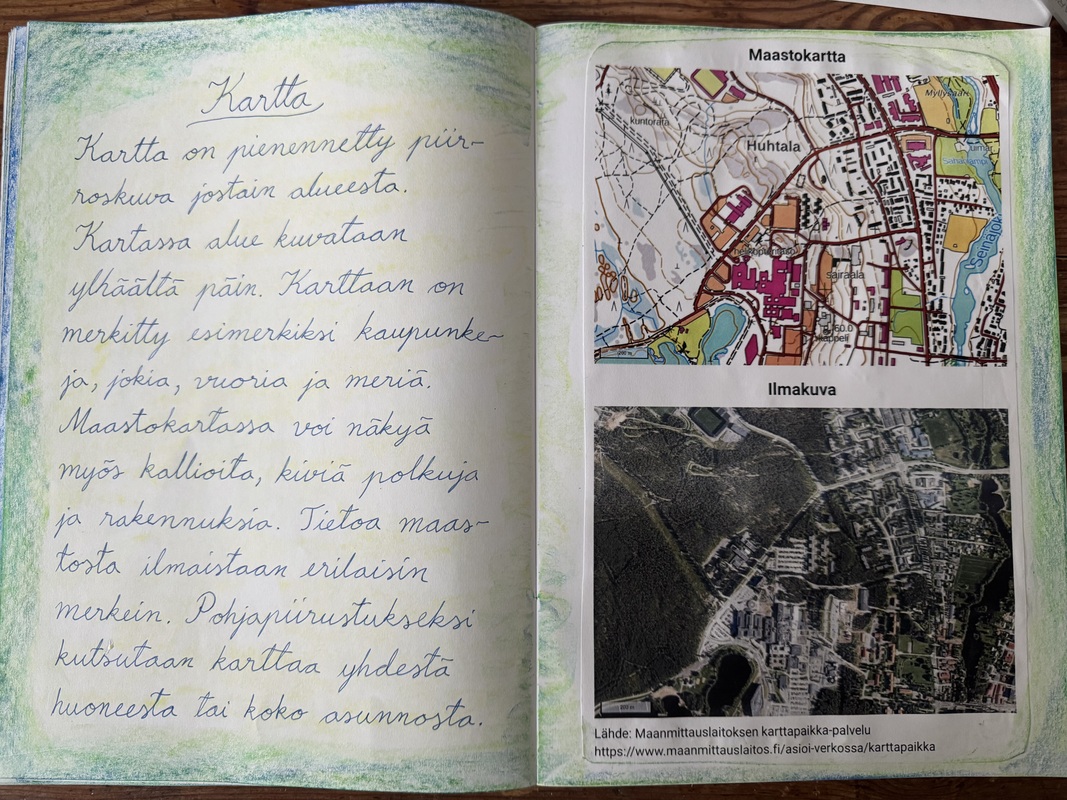 Kartta
Kartta on pienennetty piir-
roskuva jostain alueesta.
Kartassa alue kuvataan
ylhäältä päin. Karttaan on
merkitty esimerkiksi kaupunke-
ja, jokia, vuoria ja meriä.
Maastokartassa voi näkyä
myös kallioita, kiviä polkuja
ja rakennuksia. Tietoa maas-
tosta ilmaistaan erilaisin
merkein. Pohjapiirustukseksi
kutsutaan karttaa yhdestä
huoneesta tai koko asunnosta.
Maastokartta
Myllysaari
kuntorata
Huhtala
Sahalampi
Seinäjok
sairaala
kappeli
200 m
Ilmakuva
Lähde: Maanmittauslaitoksen karttapaikka-palvelu
https://www.maanmittauslaitos.fi/asioi-verkossa/karttapaikka